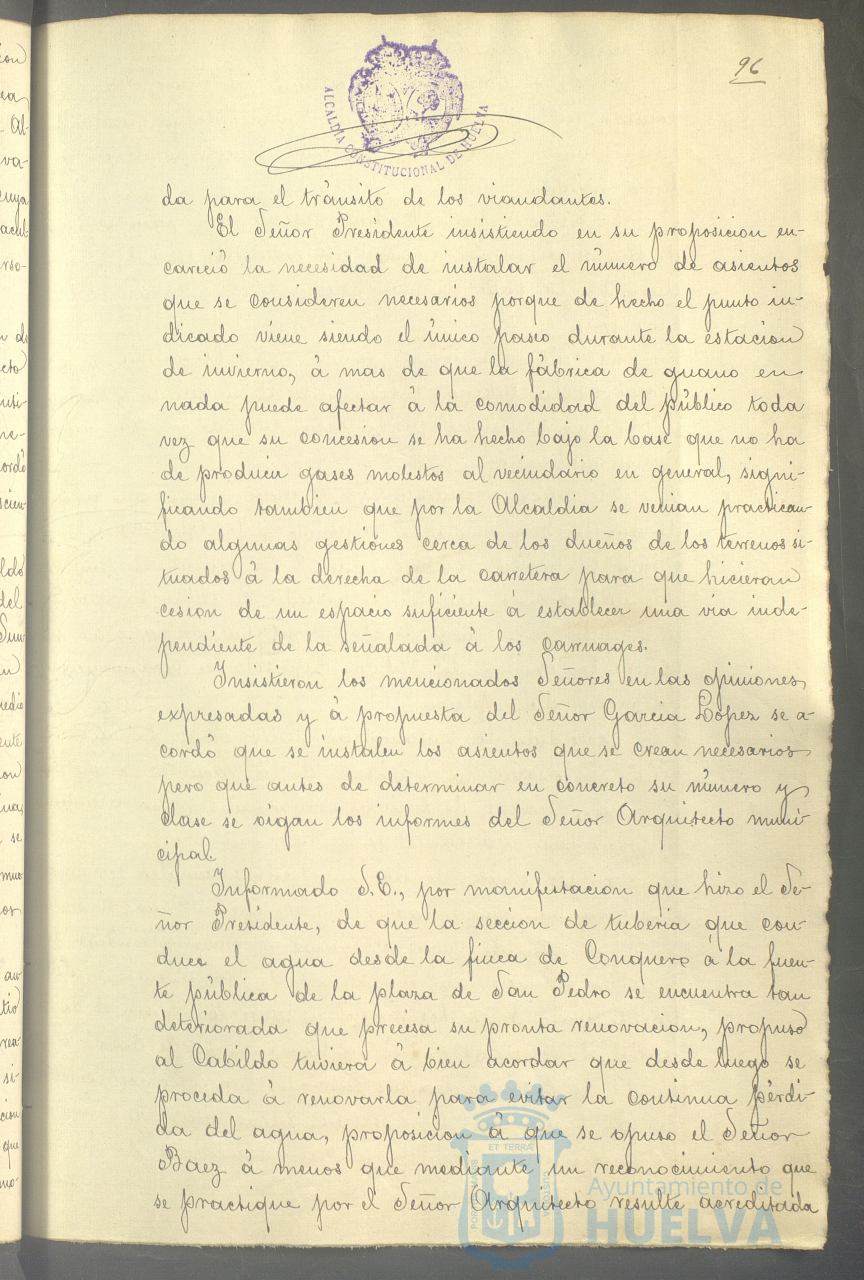 96
ALCALDIA CONSTITUCIONAL DE HUELVA
da para el tránsito de los viandantes.
El Señor Presidente insistiendo en su proposicion en-
careció la necesidad de instalar el número de asientos
que se consideren necesarios porque de hecho el punto in-
dicado viene siendo el único paseo durante la estacion
de invierno, á mas de que la fábrica de guano en
nada puede afectar á la comodidad del público toda
vez que su concesion se ha hecho bajo la base que no ha
de producir gases molestos al vecindario en general, signi-
ficando tambien que por la Alcaldia se venian practican-
do algunas gestiones cerca de los dueños de los terrenos si-
tuados á la derecha de la carretera para que hicieran
cesion de un espacio suficiente á establecer una via inde-
pendiente de la señalada á los carruages.
Insistieron los mencionados Señores en las opiniones
expresadas y á propuesta del Señor Garcia López se a-
cordó que se instalen los asientos que se crean necesarios
pero que antes de determinar en concreto su número y
clase se oigan los informes del Señor Arquitecto muni-
cipal.
Informado S.E., por manifestacion que hizo el Se-
ñor Presidente, de que la seccion de tuberia que con-
duce el agua desde la finca de Conquero á la fuen-
te pública de la plaza de San Pedro se encuentra tan
deteriorada que precisa su pronta renovacion, propuso
al Cabildo tuviera á bien acordar que desde luego se
proceda á renovarla para evitar la continua pérdi-
da del agua, proposicion á que se opuso el Señor
Baez á menos que mediante un reconocimiento que
se practique por el Señor Arquitecto resulte acreditada
ET TERRA
Ayuntamiento de
HUELVA